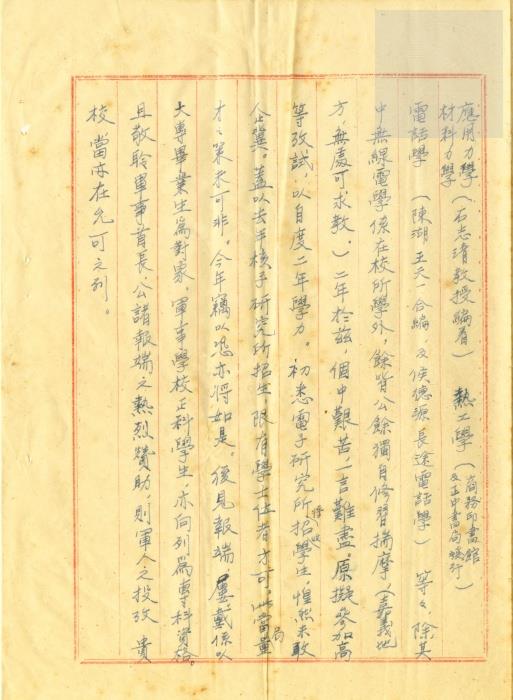 應用力學
材料力學（石志清教授編着）　熱工學（商務印書館及正中書局發行）
電話學（陳湖　王天一合編，及侯德源長途電話學）等々，除其
中無線電學係在校所學外，餘皆公餘獨自修習揣摩（嘉義地
方，無處可求教。）二年於兹，個中艱苦，一言難盡，原擬參加高
等攷試，以自度二年學力。初悉電子研究所招收學生，惶然未敢
企冀。蓋以去年核子研究所招生，限有學士位者方可，此當局量
才之策未可非。今年竊以爲亦將如是。後見報端，屢載係以
大專畢業生爲對象。軍事學校正科學生，亦向列爲專科資格。
且敬聆軍事首長，公諸報端之熱烈贊助，則軍人之投攷　貴
校，當亦在允可之列。